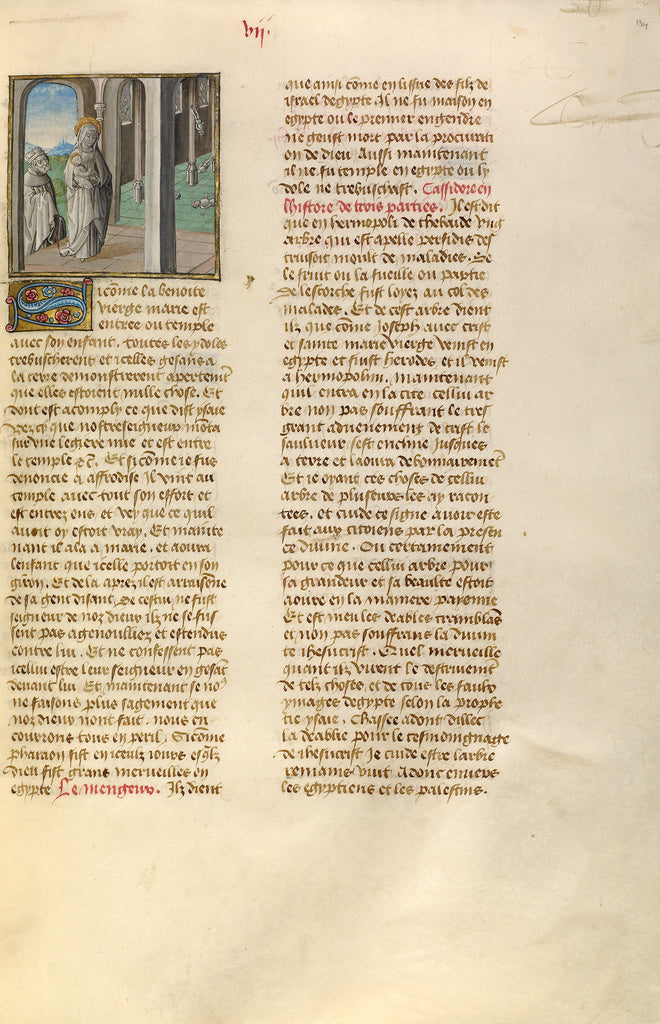 vij.
134
Sicõme la benoite
vierge marie est
entree ou temple
avec son enfant. toutes les ydoles
trebuscherent et icelles gesans a
la terre demonstrerent apertemẽt
que elles estoient nulle chose. Et
dont est acomply ce que dist ysaye
Vez cy que nostreseigneur mõta
sur vne legiere nue et est entre
le temple &c̃. Et sicõme ie fus
denoncie a affrodise Il vint au
temple avec tout son effort et
est entrez ens et vey que ce quil
auoit oy estoit vray. Et mainte
nant il ala a marie. et aoura
lenfant que icelle portoit en son
giron. Et de la apres il est arraisone
de sa gent disant. Se cestui ne fust
seigneur de noz dieux ilz ne se fus
sent pas agenoulliez et estendus
contre lui. Et ne confessent pas
icellui estre leur seigneur en gesãt
deuant lui Et maintenant se no9
ne faisons plus sagement que
noz dieux nont fait. nous en
courrons tous en peril. Sicõme
pharaon fist en iceulx iours esqlz
dieu fist grans merveilles en
egypte Le mengeur. Ilz dient
que ainsi cõme en lissue des filz de
israel degypte Il ne fu maison en
egypte ou le premier engendre
ne geust mort par la procurati
on de dieu Aussi maintenant
il ne fu temple en egypte ou ly
dole ne trebuschast. Cassidore en
lhistore de trois parties. Il est dit
que en hermopoli de thebaide vng
arbre qui est apelle persidis des
truisoit moult de maladies. Se
le fruit ou la fueille ou partie
de lescorche fust loyez au col des
malades. Et de cest arbre dient
ilz que cõme Joseph avec crist
et sainte marie vierge venist en
egypte et fuist herodes et il venist
a hermopolim. maintenant
quil entra en la cite cellui ar
bre non pas souffrant le tres
grant aduenement de crist le
saulueur sest encline Jusques
a terre et laoura debonnairemẽt
Et ie oyant ces choses de cellui
arbre de plusieurs les ay racon
tees. et cuide ce signe auoir este
fait aux citoiens par la presen
ce diuine. Ou certainement
pour ce que cellui arbre pour
sa grandeur et sa beaulte estoit
aoure en la maniere payenne
Et est meu les deables tramblãs
et non pas souffrans la diuini
te ihesucrist. Quel merveille
quant ilz virent le destruiemẽt
de telz choses. et de tous les faulx
ymages degypte selon la prophe
tie ysaie. Chassee adont dillec
la deablie pour le tesmoingnage
de ihesucrist Je cuide estre larbre
remains vint adont enuers
les egyptiens et les palestins.